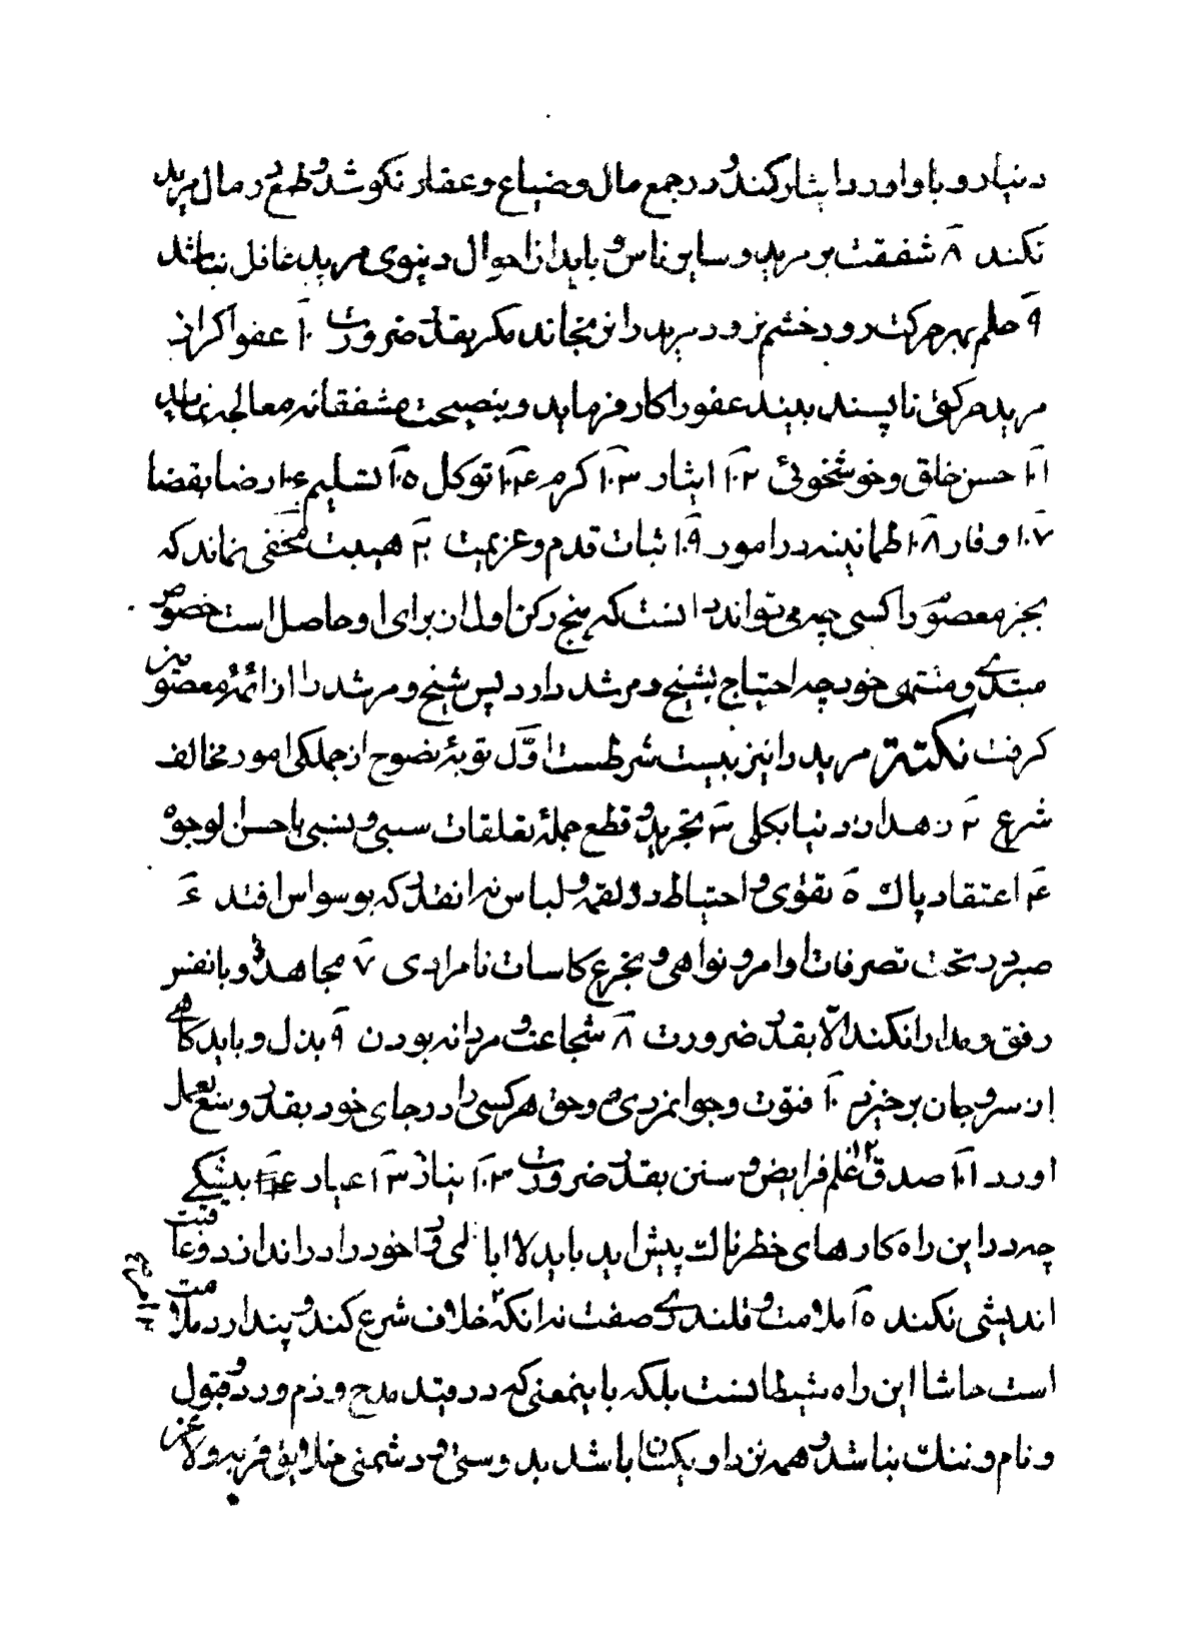 دنیا رو باو اورد ایثار کند و در جمع مال و ضیاع و عقار نکوشد و طمع در مال مرید
نکند ۸ شفقت بر مرید و سایر ناس و باید از احوال دنیوی مرید غافل نباشد
۹ حلم بهر حرکت رود خشم نرود مرید را نرنجاند مکر بقدر ضرورت ۱۰ عفو اکر از
مرید حرکتی ناپسند بیند عفو را کار فرماید و بنصیحت مشفقانه معالجه نماید
۱۰۱ حسن خلق و خوشخوئی ۱۰۲ ایثار ۱۰۳ کرم ۱۰۴ توکل ۱۰۵ تسلیم ۱۰۶ رضا بقضا
۱۰۷ وقار ۱۰۸ طمانینه در امور ۱۰۹ ثبات قدم و عزیمت ۲۰ هیبت مخفی نماند که
بجز معصوم را کسی چه می تواند دانست که پنج رکن اول ان برای او حاصل است خصوص
مبتدی و منتهی خود چه احتیاج بشیخ و مرشد دارد پس شیخ و مرشد را از ائمهٔ معصومین
کرفت نکتة مرید را نیز بیست شرطست اوّل توبهٔ نصوح از جملکی امور مخالف
شرع ۲ زهد از دنیا بکلی ۳ تجرید و قطع جملهٔ تعلقات سببی و نسبی باحسن الوجوه
۴ اعتقاد پاک ۵ تقوی و احتیاط در لقمه و لباس نه انقدر که بوسواس افتد ۶
صبر در تحت تصرفات اوامر و نواهی و تجرع کاسات نامرادی ۷ مجاهده و با نفس
رفق و مدارا نکند الّا بقدر ضرورت ۸ شجاعت و مردانه بودن ۹ بذل و باید کاهی
از سر و جان برخیزد ۱۰ فتوّت و جوانمردی و حق هر کسی را در جای خود بقدر وسع بعمل
اورد ۱۰۱ صدق ۱۲ علم فرایض و سنن بقدر ضرورت ۱۰۳ نیاز ۱۳ عیار بیشکی
چه در این راه کارهای خطرناک پیش اید باید لا ابالی وار خود را در اندازد و عاقبت
اندیشی نکند ۱۵ ملامت و قلندری صفت نه انکه خلاف شرع کند و پندارد ملامت
است حاشا این راه شیطانست بلکه باینمعنی که در قید مدح و ذم و رد و قبول
و نام و ننک نباشد و همه نزد او یکسان باشد بدوستی و دشمنی خلایق فربه و لاغر